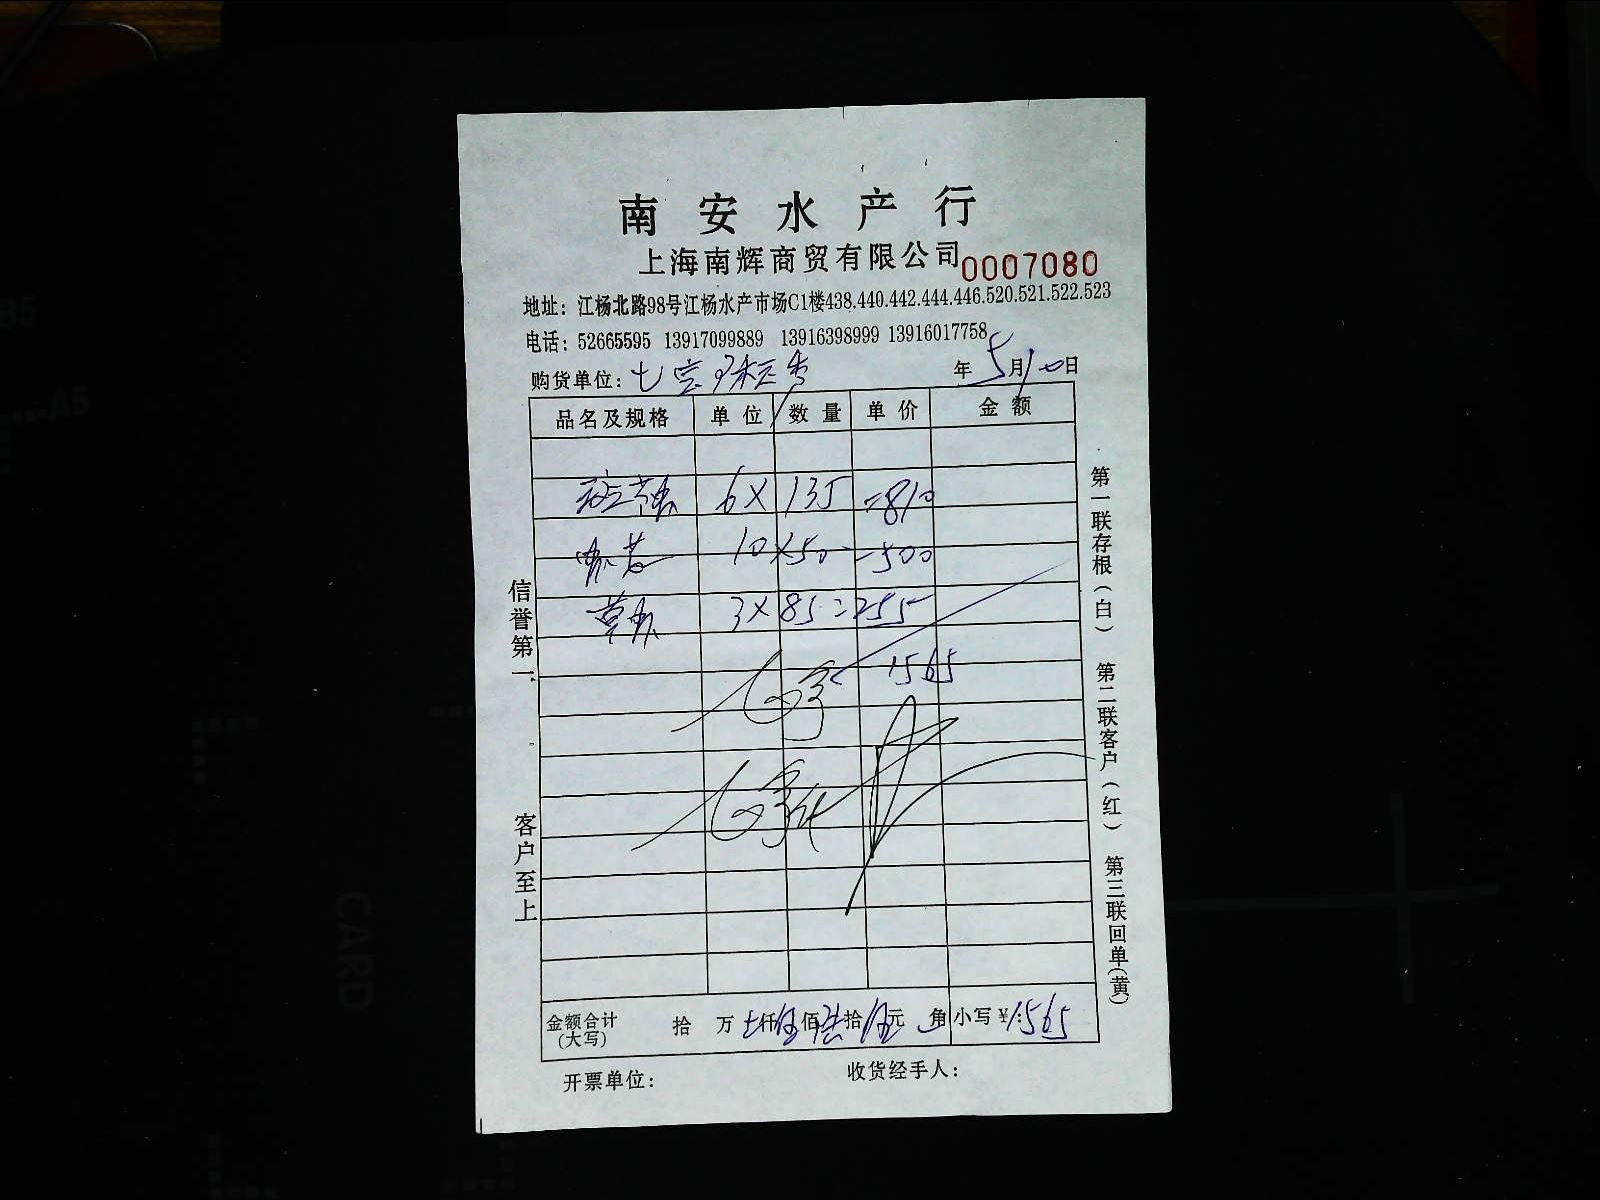 南安水产行
上海南辉商贸有限公司 0007080
地址：江杨北路98号江杨水产市场C1楼438.440.442.444.446.520.521.522.523
电话：52665595 13917099889 13916398999 13916017758
购货单位：七宝 年5月10日
品名及规格 单位 数量 单价 金额
6×135=810
10×50=500
3×85=255
1565
信誉第一
客户至上
第一联存根（白） 第二联客户（红） 第三联回单（黄）
金额合计（大写） 拾 万 仟伍佰陆拾伍元 角 小写¥：1565
开票单位： 收货经手人：